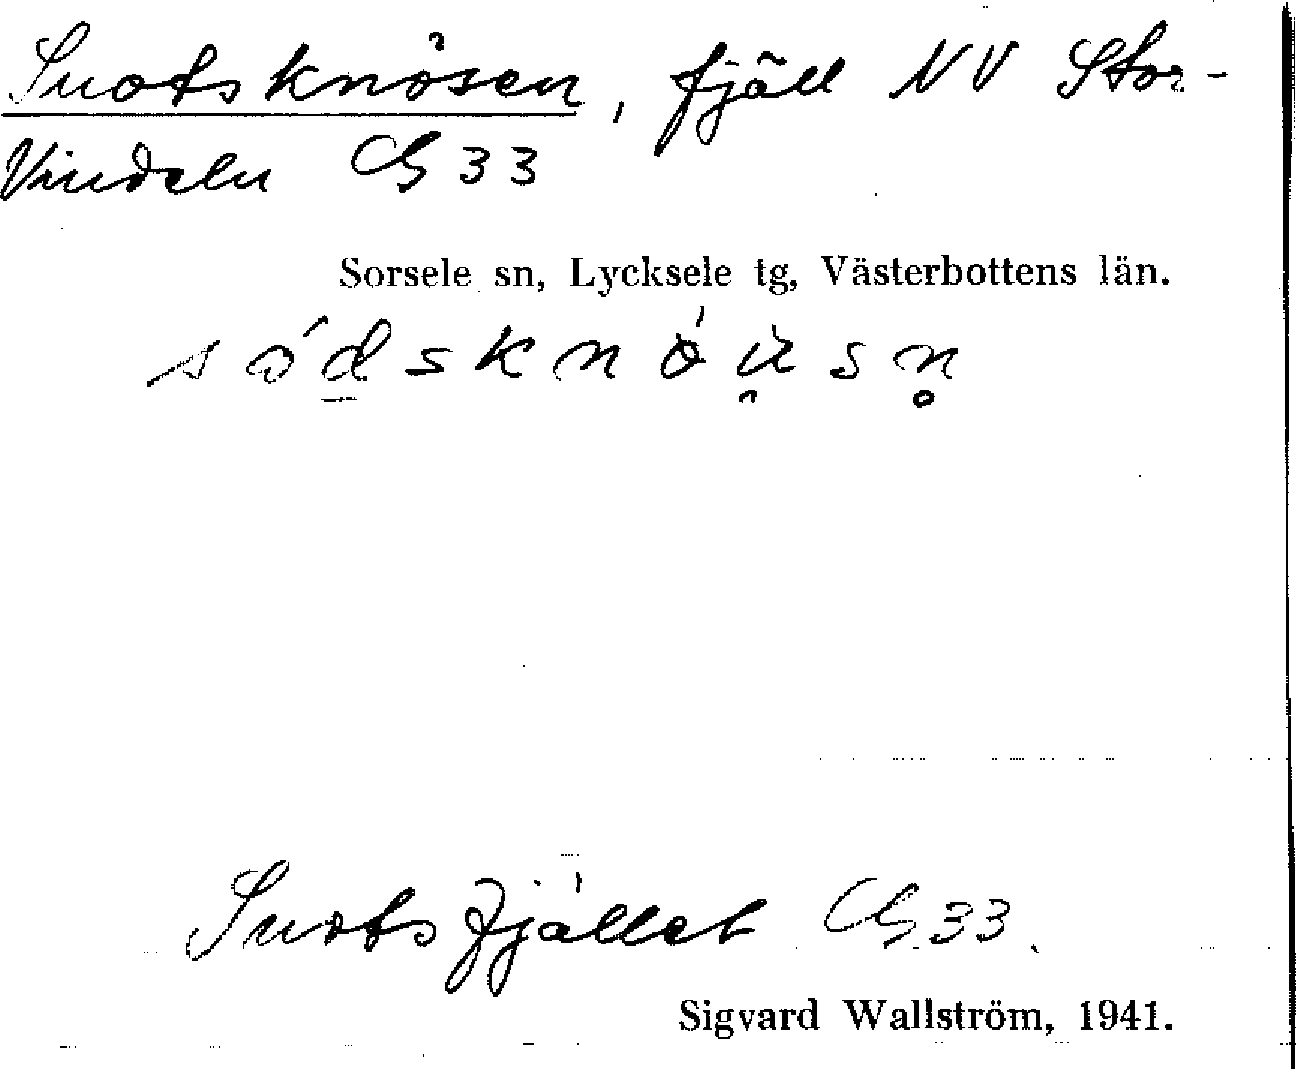 Suotsknösen, fjäll NV Stor-
Vindeln G 33
Sorsele sn, Lycksele tg, Västerbottens län.
Suotsfjället G 33.
Sigvard Wallström, 1941.